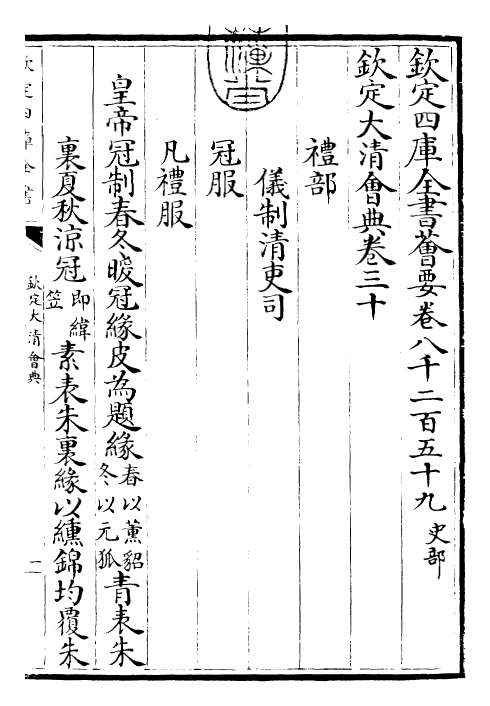 欽定四庫全書薈要卷八千二百五十九 史部
欽定大清會典卷三十
禮部
儀制清吏司
冠服
凡禮服
皇帝冠制春冬暖冠緣皮為題緣春以薰貂冬以元狐青表朱
裏夏秋涼冠即緯笠素表朱裏緣以纁錦均覆朱
欽定四庫全書
欽定大清會典